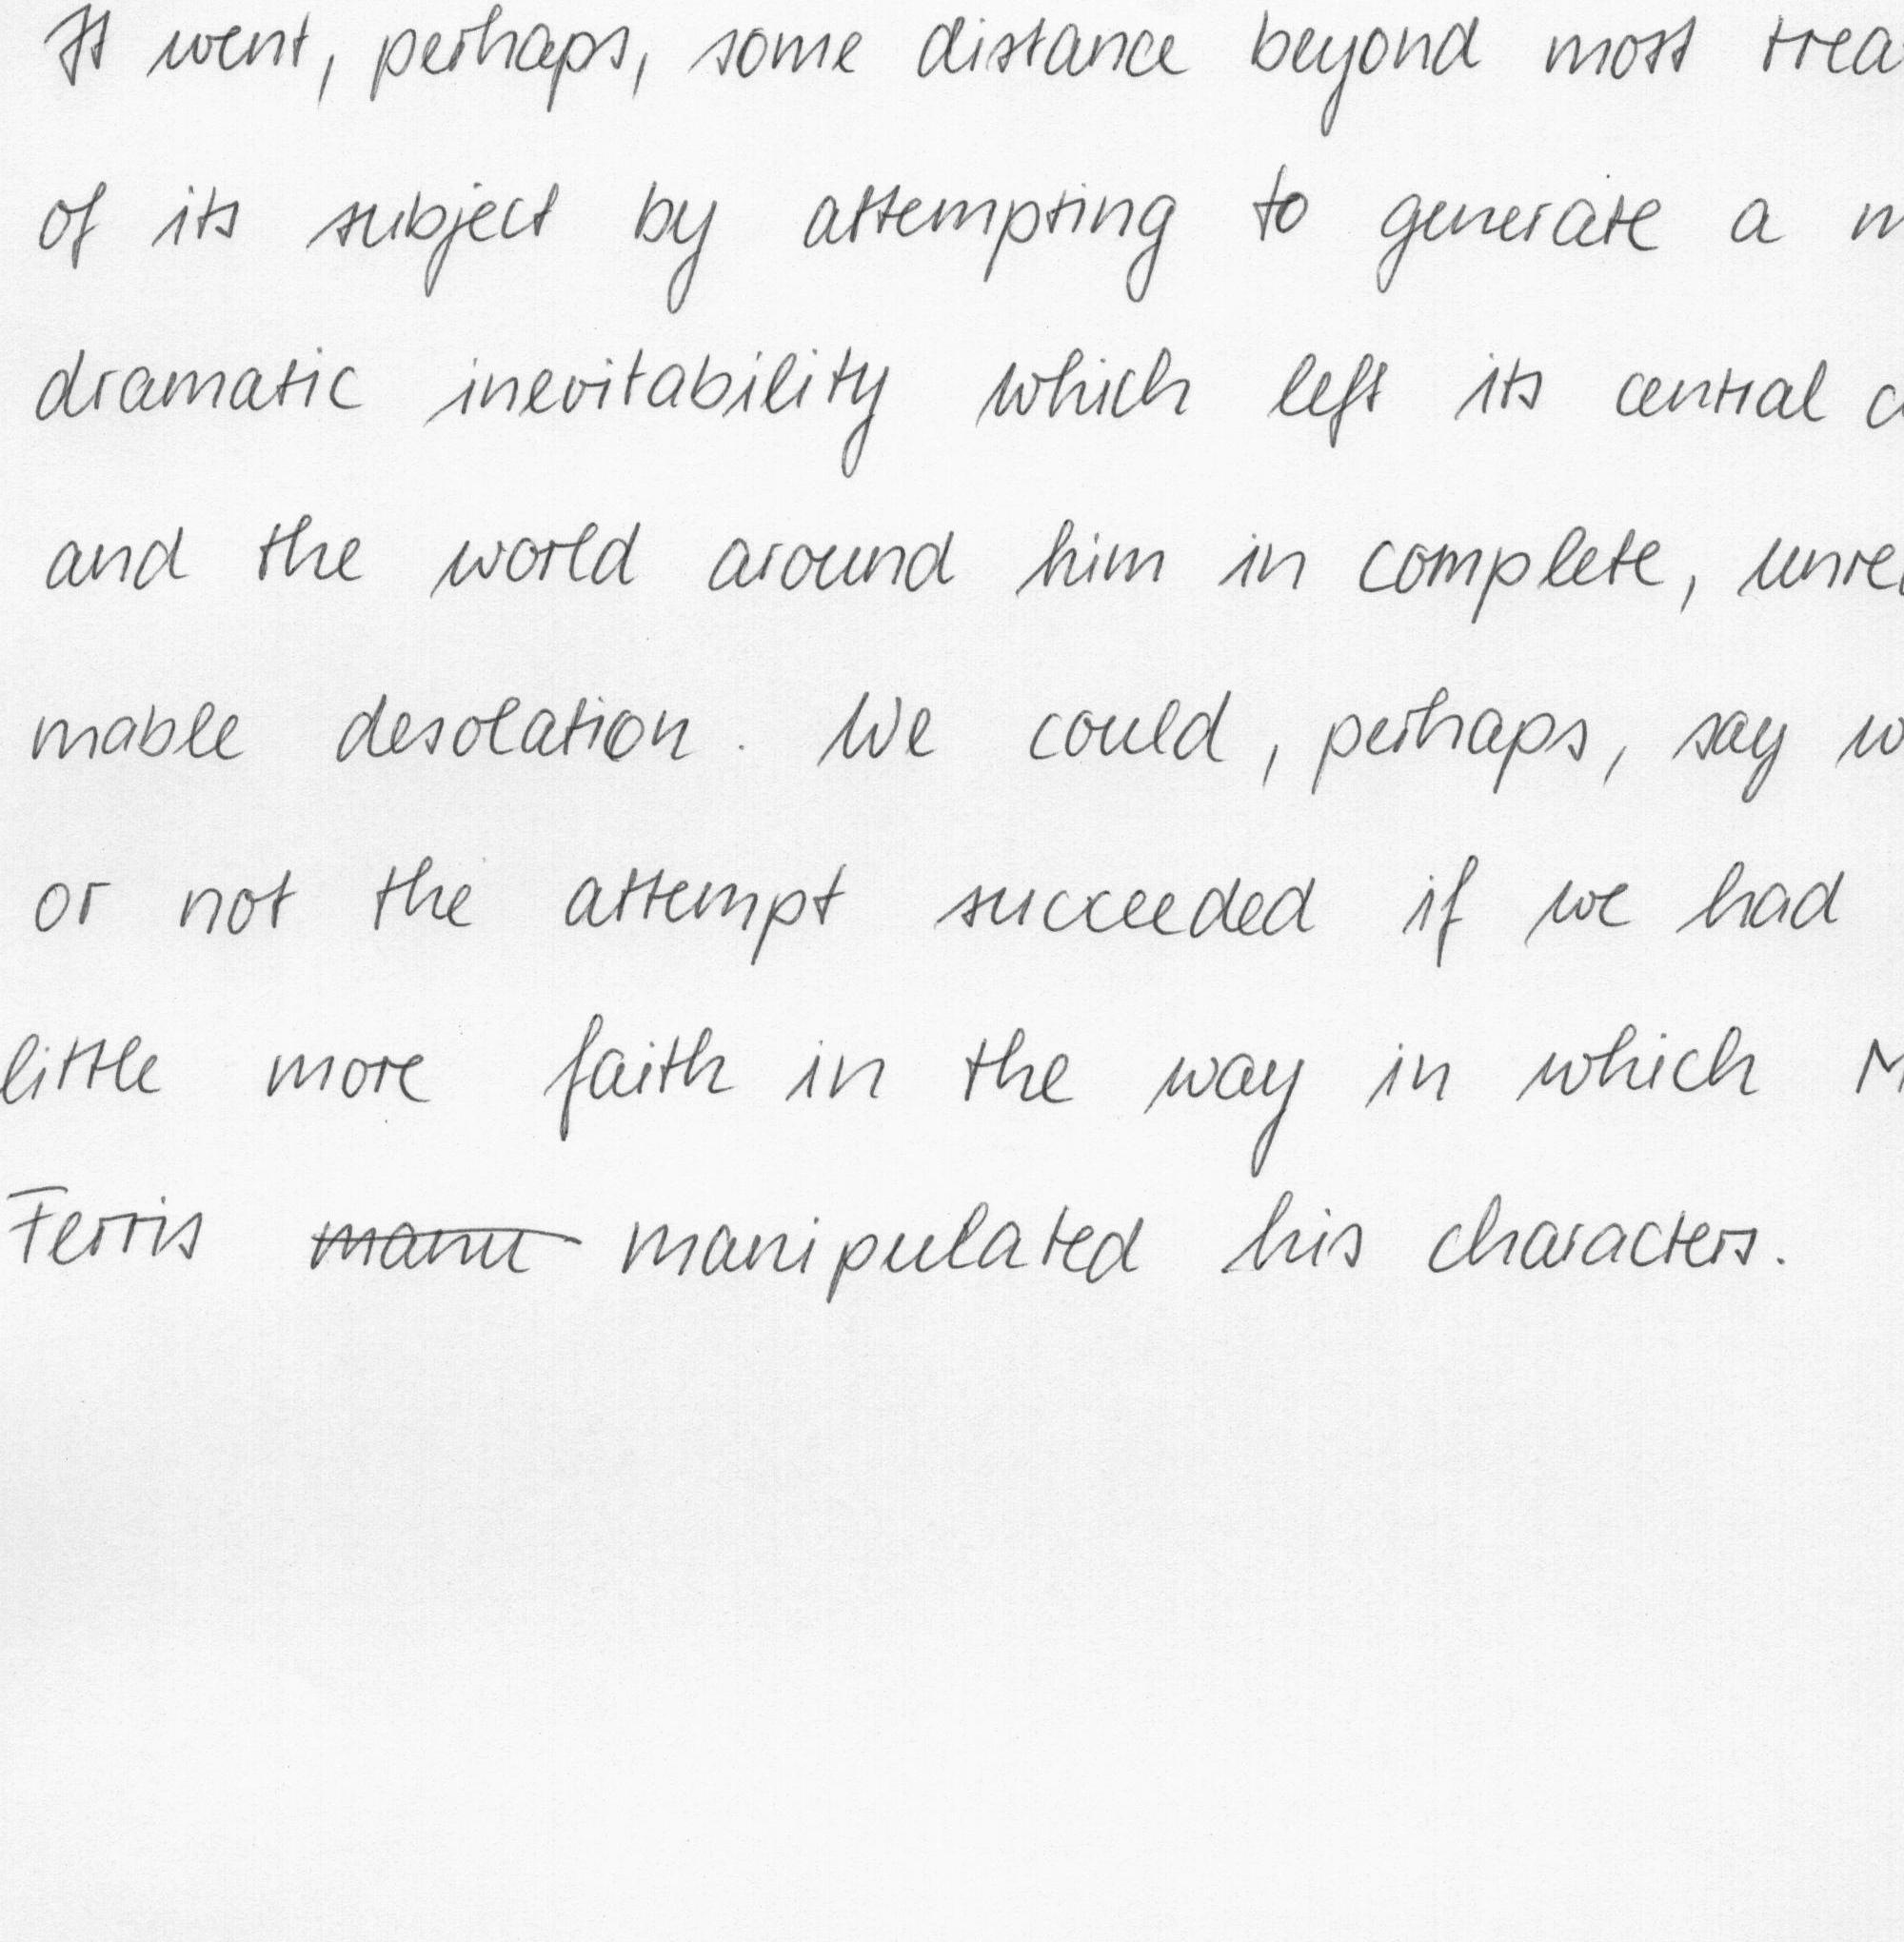 It went, perhaps, some distance beyond most trea
of its subject by attempting to generate a
dramatic inevitability which left its central
and the world around him in complete, unre
mable desolation. We could, perhaps, say
or not the attempt succeeded if we had
little more faith in the way in which M
Ferris manipulated his characters.